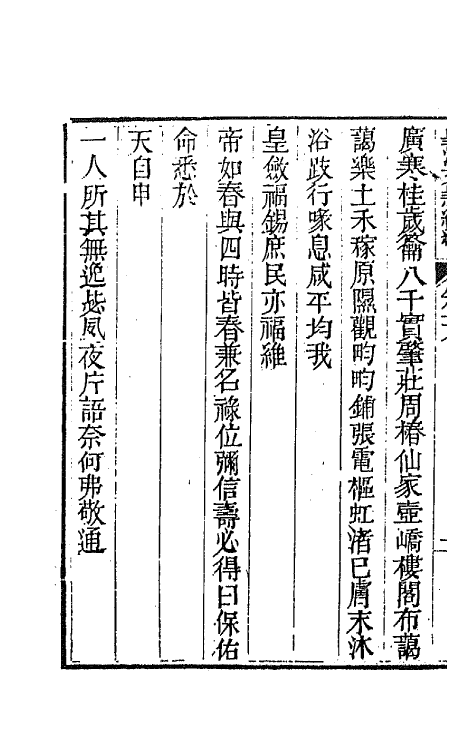 廣寒桂歲籥八千實肇莊周椿仙家壺嶠樓閣布藹
藹樂土禾稼原隰觀畇畇鋪張電樞虹渚已膚末沐
浴跂行喙息咸平均我
皇斂福錫庶民亦福維
帝如春與四時皆春兼名祿位彌信壽必得曰保佑
命悉於
天自申
一人所其無逸兹夙夜片語奈何弗敬通